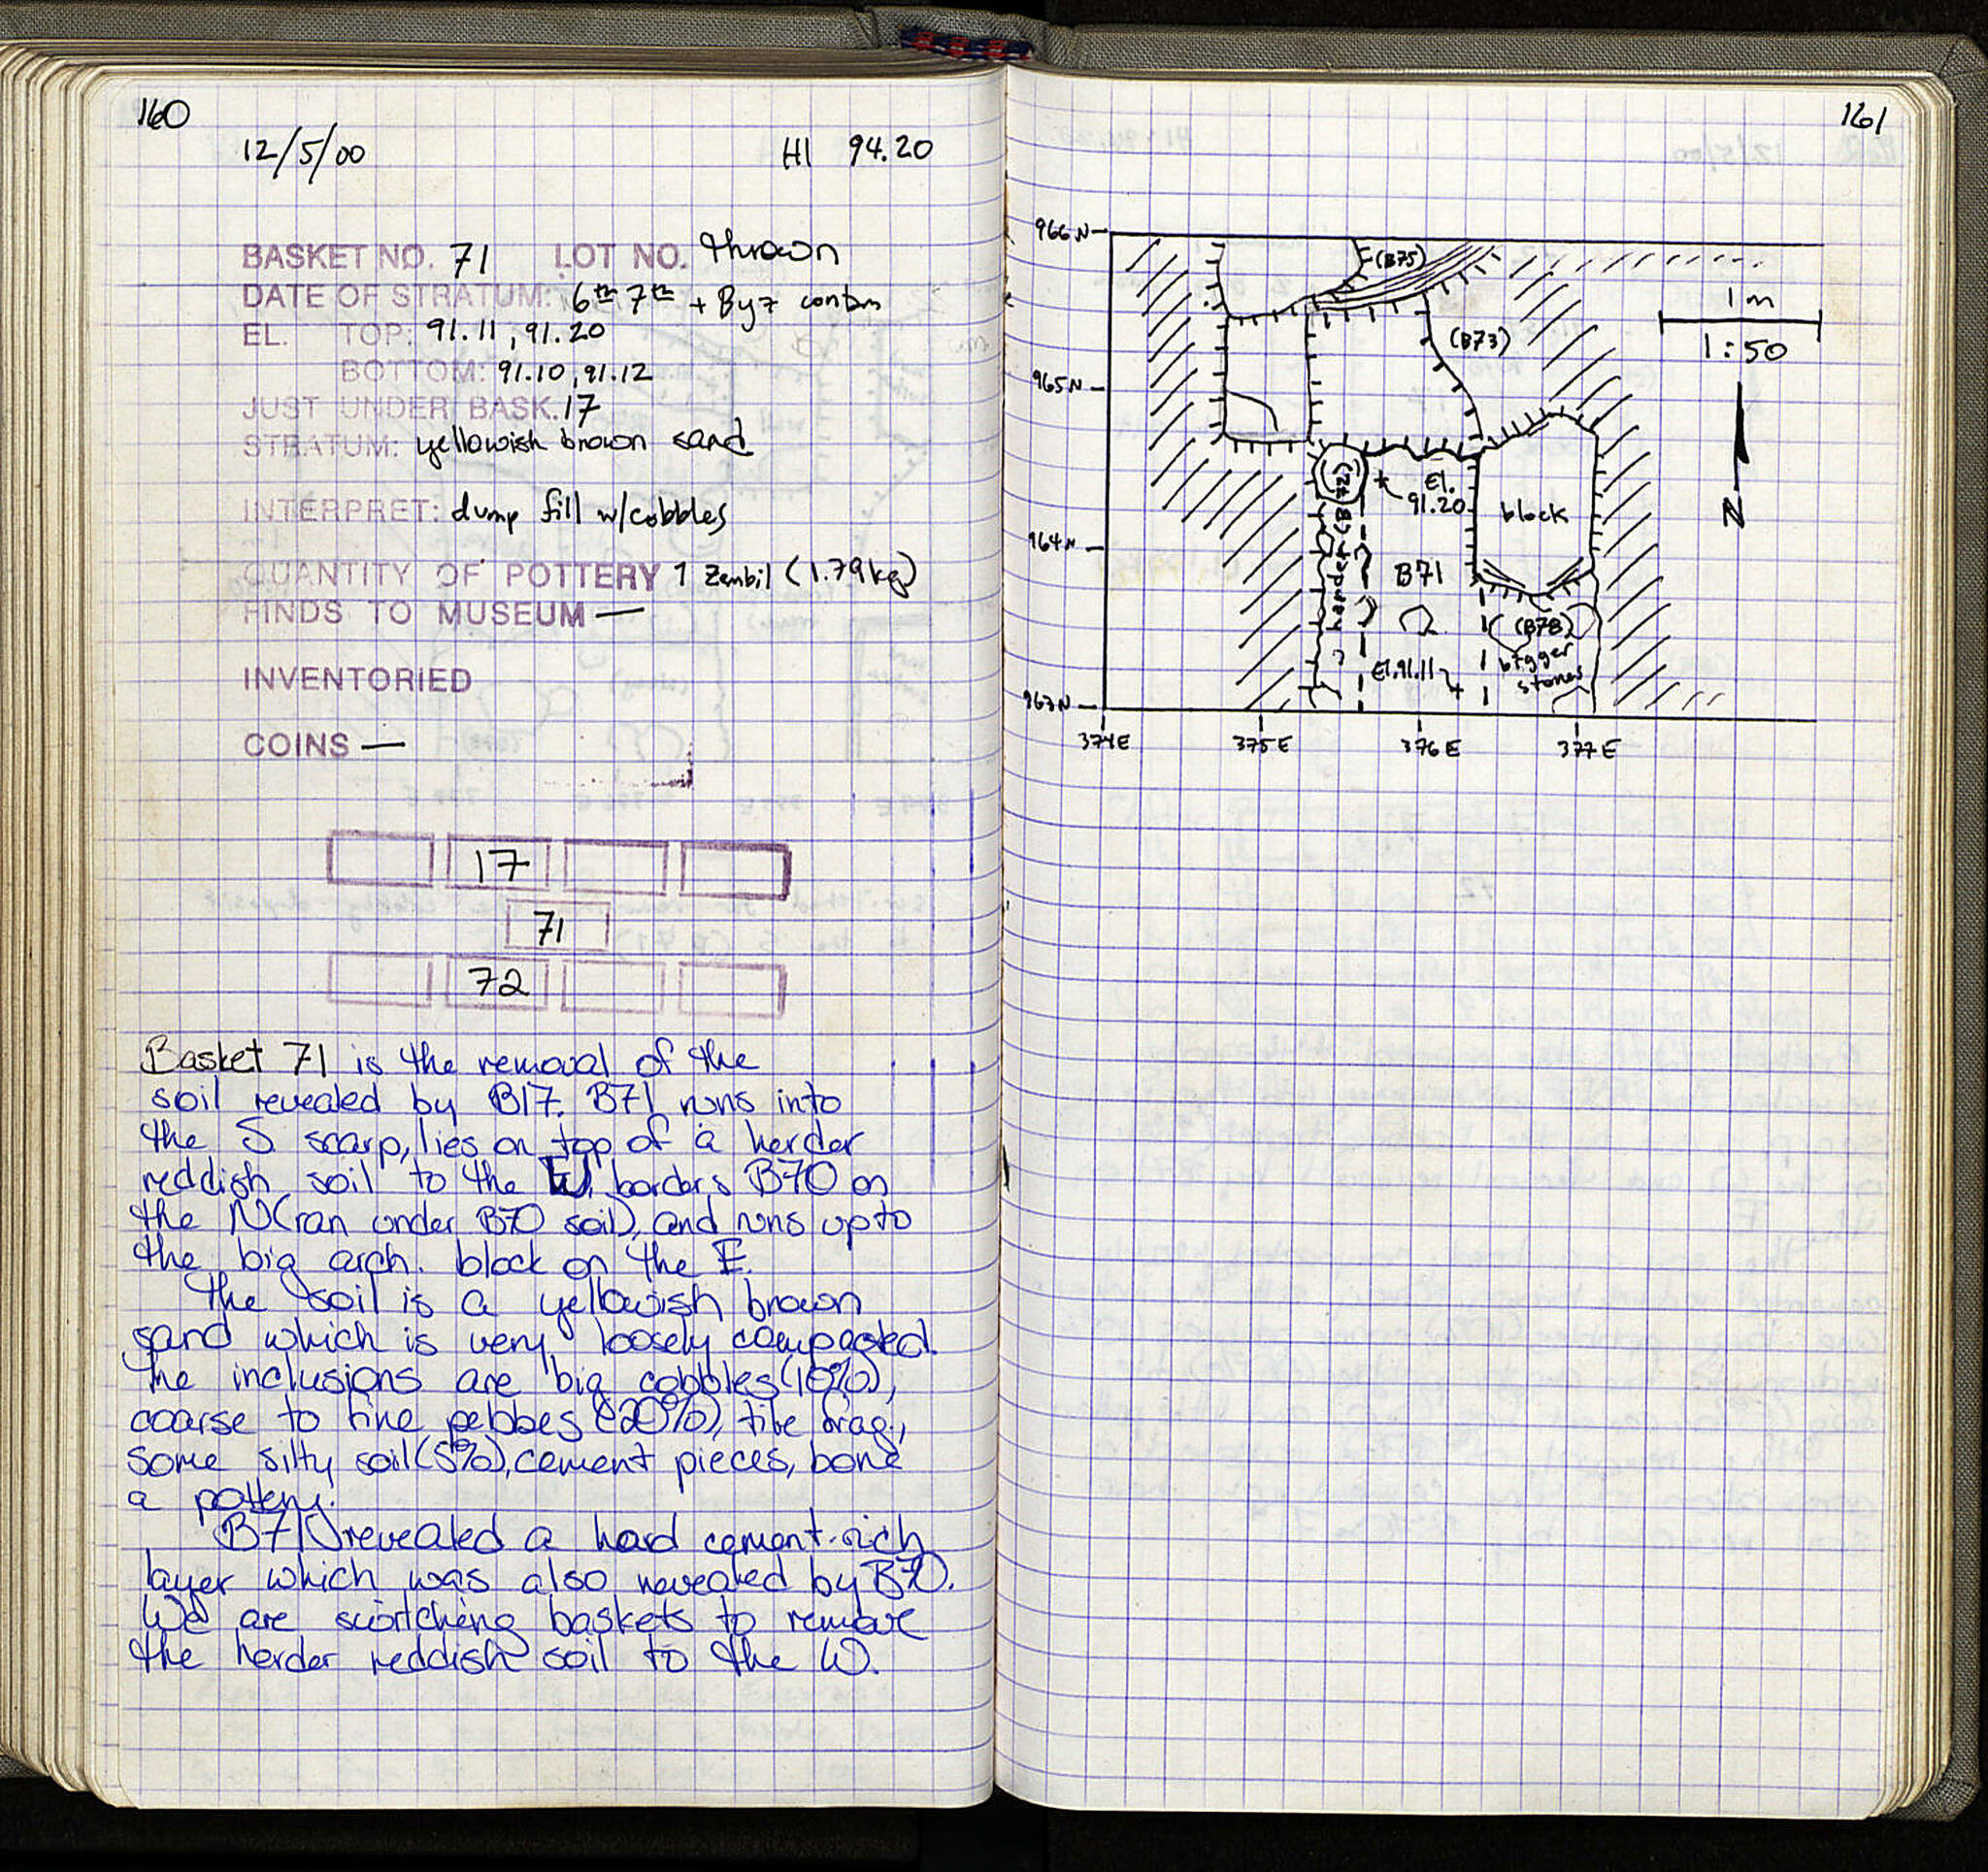 160
12/5/00 HI 94.20
BASKET NO. 71 LOT NO. thrown
DATE OF STRATUM: 6th 7th + Byz contam
EL. TOP: 91.11, 91.20
BOTTOM: 91.10, 91.12
JUST UNDER BASK. 17
STRATUM: yellowish brown sand
INTERPRET: dump fill w/cobbles
QUANTITY OF POTTERY 1 Zembil (1.79kg)
FINDS TO MUSEUM —
INVENTORIED
COINS —
17
71
72
Basket 71 is the removal of the
soil revealed by B17. B71 runs into
the S scarp, lies on top of a herder
reddish soil to the W, borders B70 on
the N (ran under B70 soil), and runs up to
the big arch. block on the E.
The soil is a yellowish brown
sand which is very loosely compacted.
The inclusions are big cobbles (10%),
coarse to fine pebbes (20%), tile frag.,
some silty soil (5%), cement pieces, bone
a pottery.
B71 revealed a hard cement-rich
layer which was also revealed by B70.
We are switching baskets to remove
the herder reddish soil to the W.
161
966N
(B75)
1 m
1:50
(B73)
965N
N
(B72)
El.
91.20
block
964N
redder
B71
(B78)
bigger
stones
El. 91.11
963N
374E 375E 376E 377E